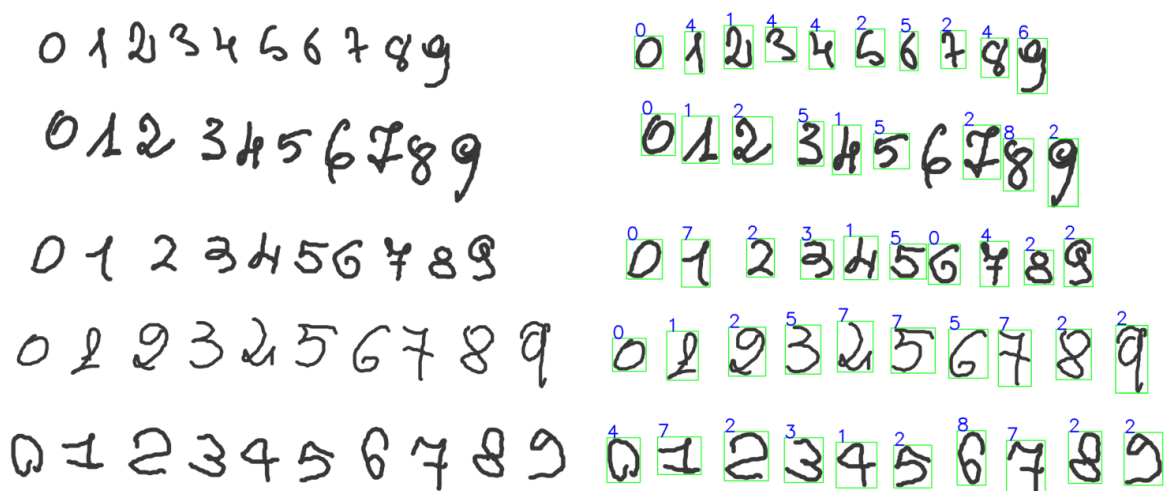 0 1 2 3 4 5 6 7 8 9
0 1 2 3 4 5 6 7 8 9
0 1 2 3 4 5 6 7 8 9
0 1 2 3 2 5 6 7 8 9
0 1 2 3 4 5 6 7 8 9
0 4 1 4 4 2 5 2 4 6
0 1 2 3 4 5 6 7 8 9
0 1 2 5 1 5 2 8 2
0 1 2 3 4 5 6 7 8 9
0 7 2 3 1 5 0 4 2 2
0 1 2 3 4 5 6 7 8 9
0 1 2 5 7 7 5 7 2 2
0 1 2 3 2 5 6 7 8 9
4 7 2 3 1 2 8 7 2 2
0 1 2 3 4 5 6 7 8 9